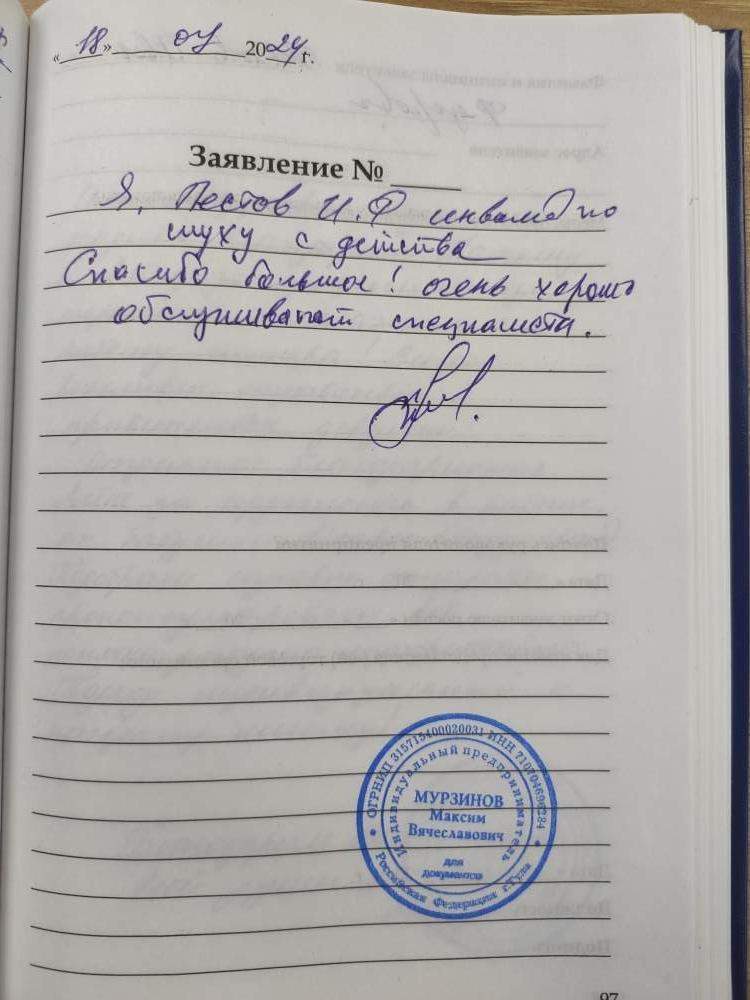 « 18 » 04 2024 г.
Заявление № ____
Я, Пестов И.Ф инвалид по
слуху с детства
Спасибо большое! очень хорошо
обслуживают специалисты.
ОГРНИП 315715400020031 ИНН 710704696284
Индивидуальный предприниматель
МУРЗИНОВ
Максим
Вячеславович
для
документов
Российская Федерация г.Тула
97